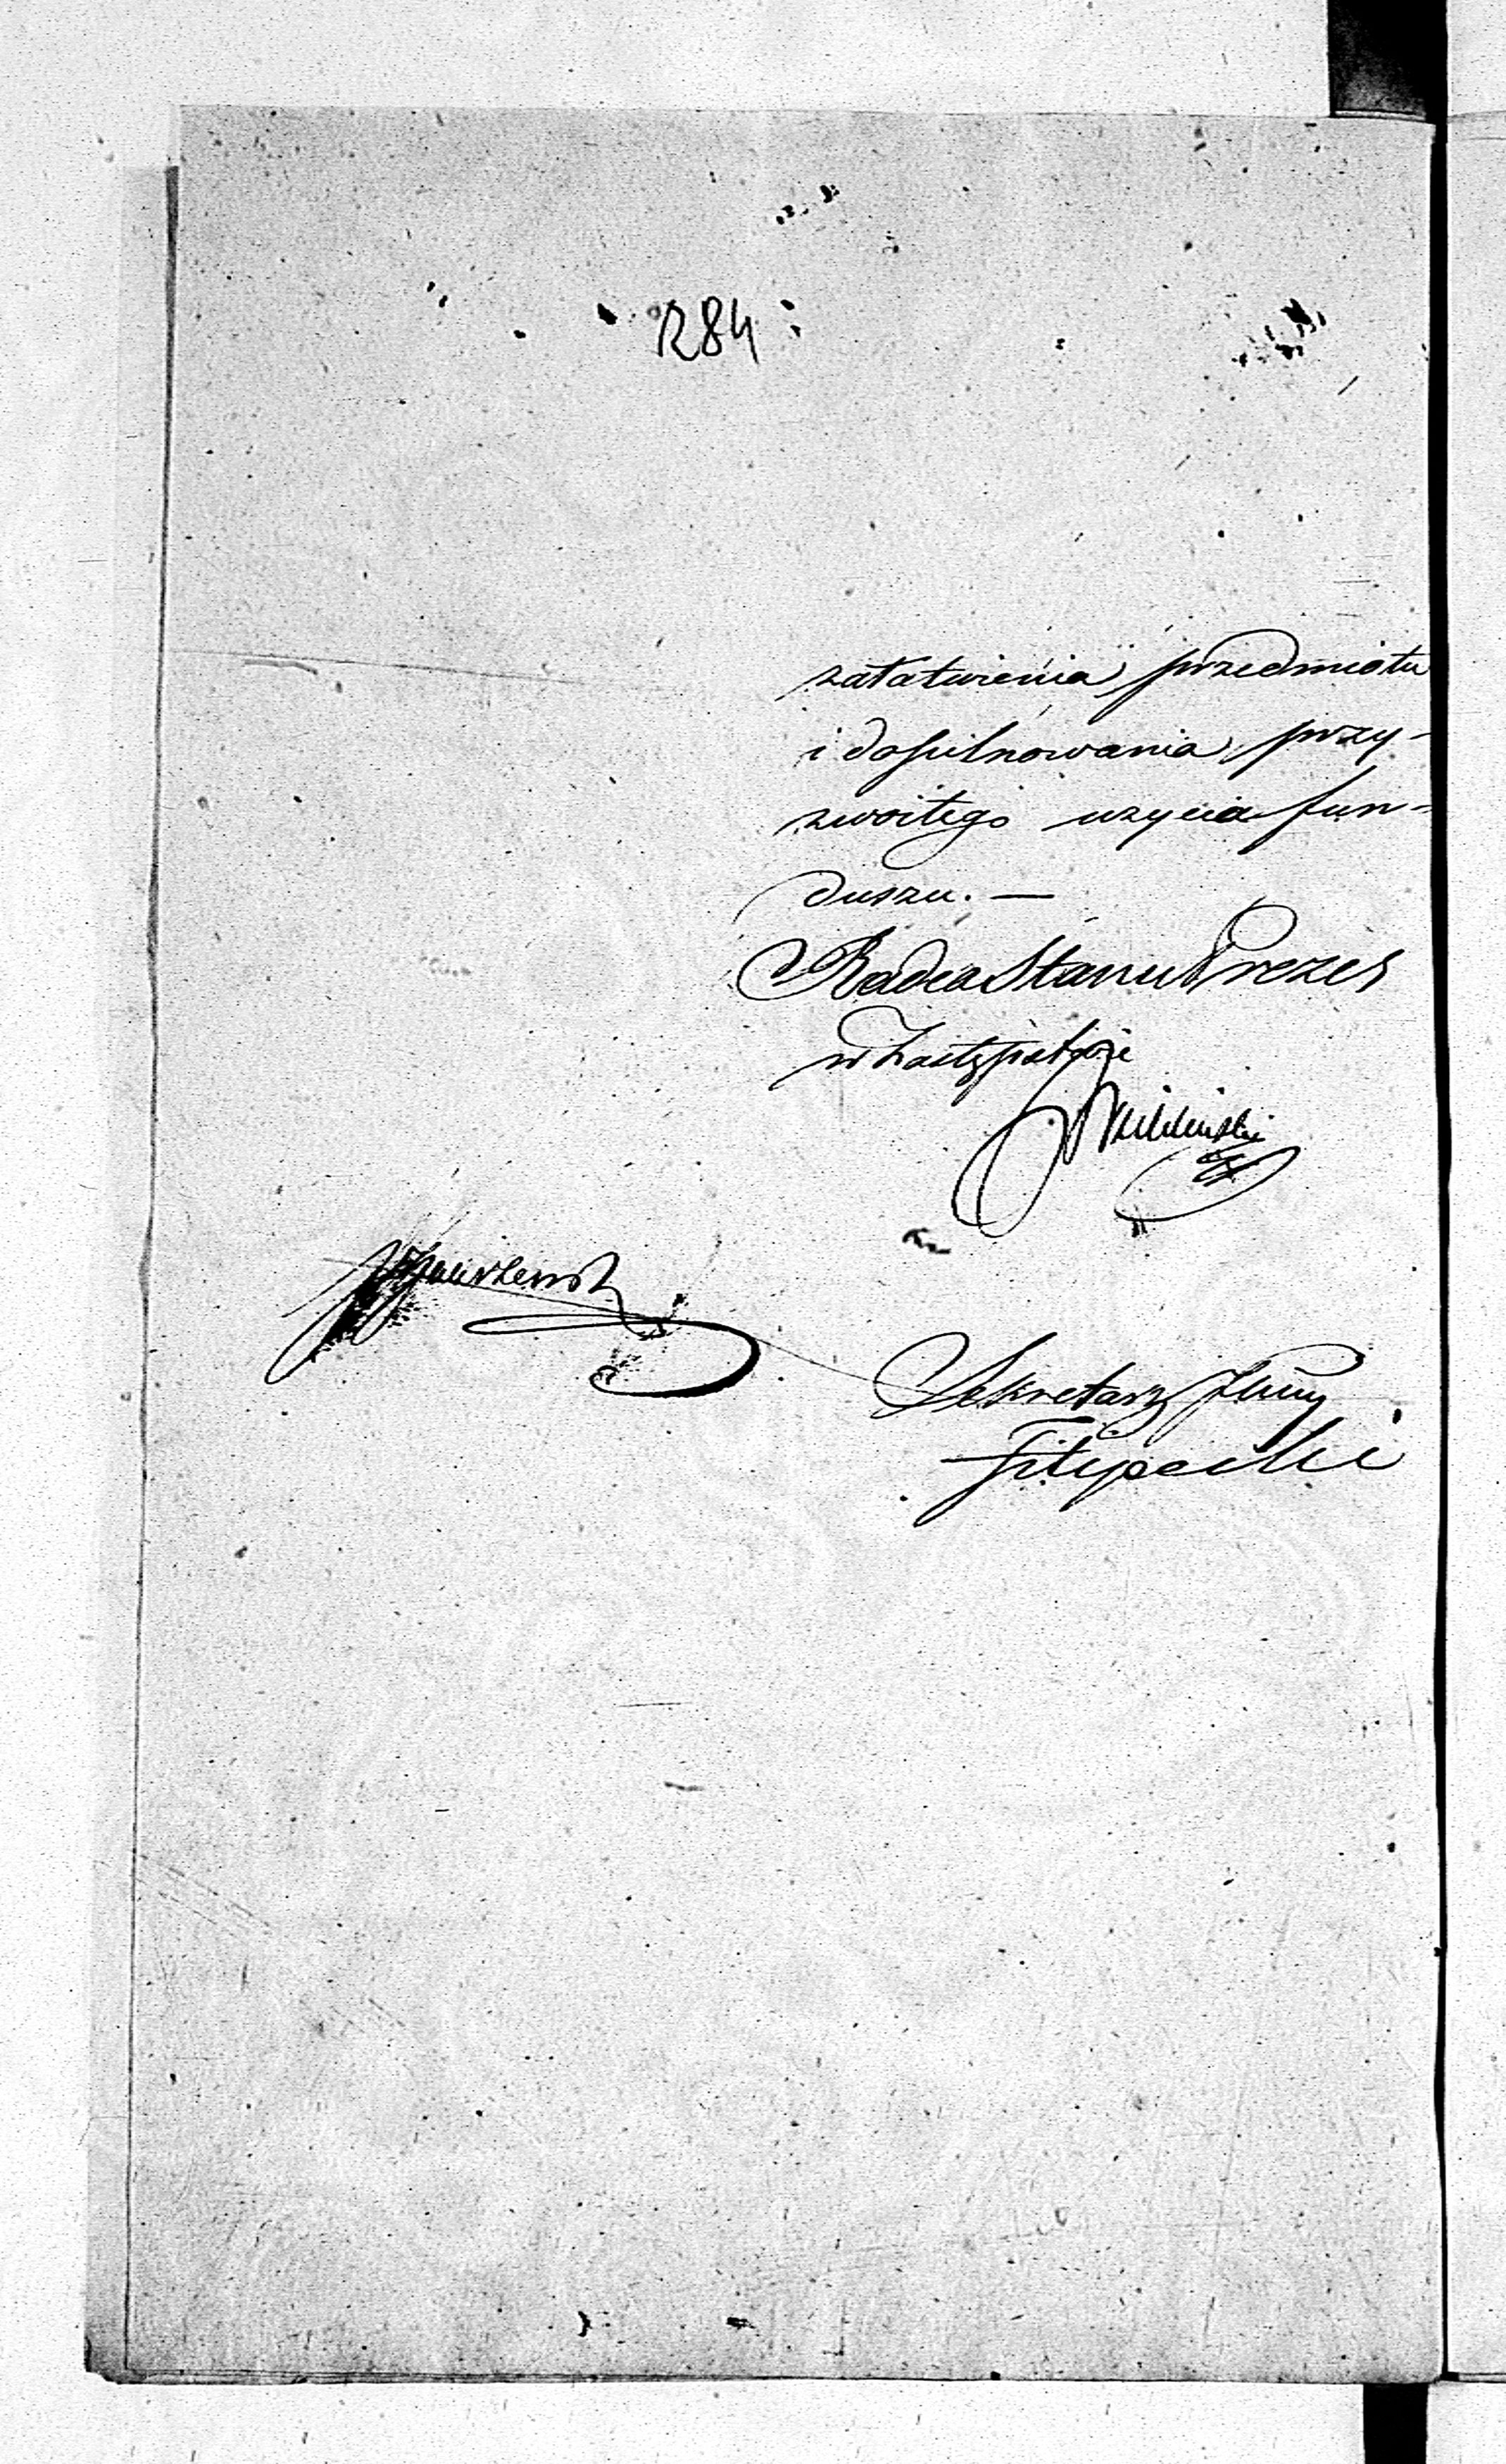 R84
załatwienia przedmiotu
i dopilnowania przy-
zwoitego uzycia fun-
duszu. —
Radca Stanu Prezes
w Zastępstwie
Sekretarz Jlny
Filipecki